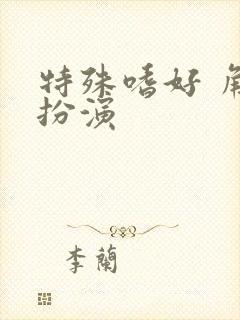 特殊嗜好 角
扮演
李蘭